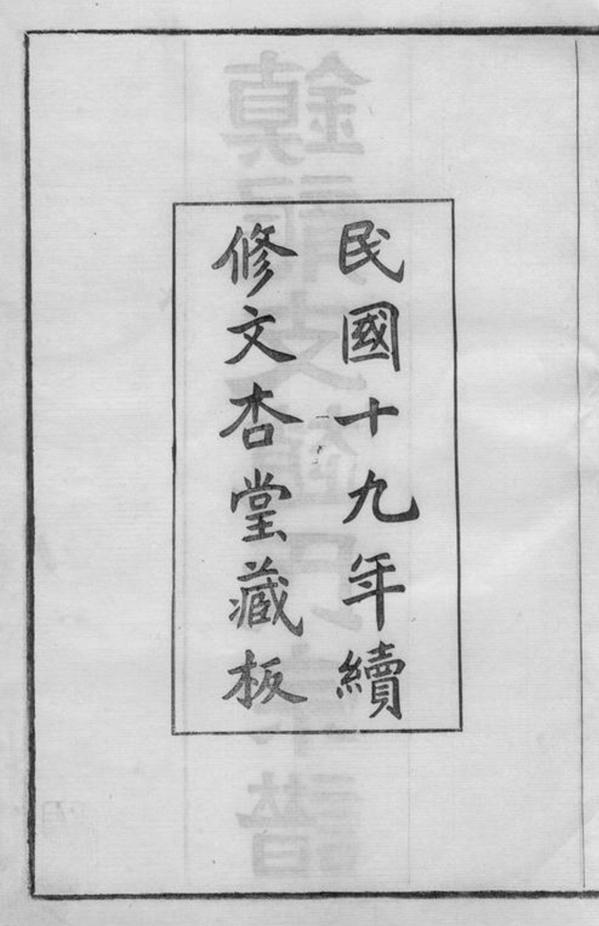 民國十九年續
修文杏堂藏板